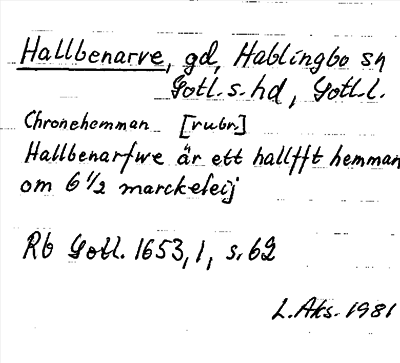 Hallbenarve, gd, Hablingbo sn
Gotl. s. hd, Gotl. l.
Chronehemman [rubr.]
Hallbenarfwe är ett hallfft hemman
om 6 1/2 marckeleij
Rb Gotl. 1653, 1, s. 62
L. Aks. 1981